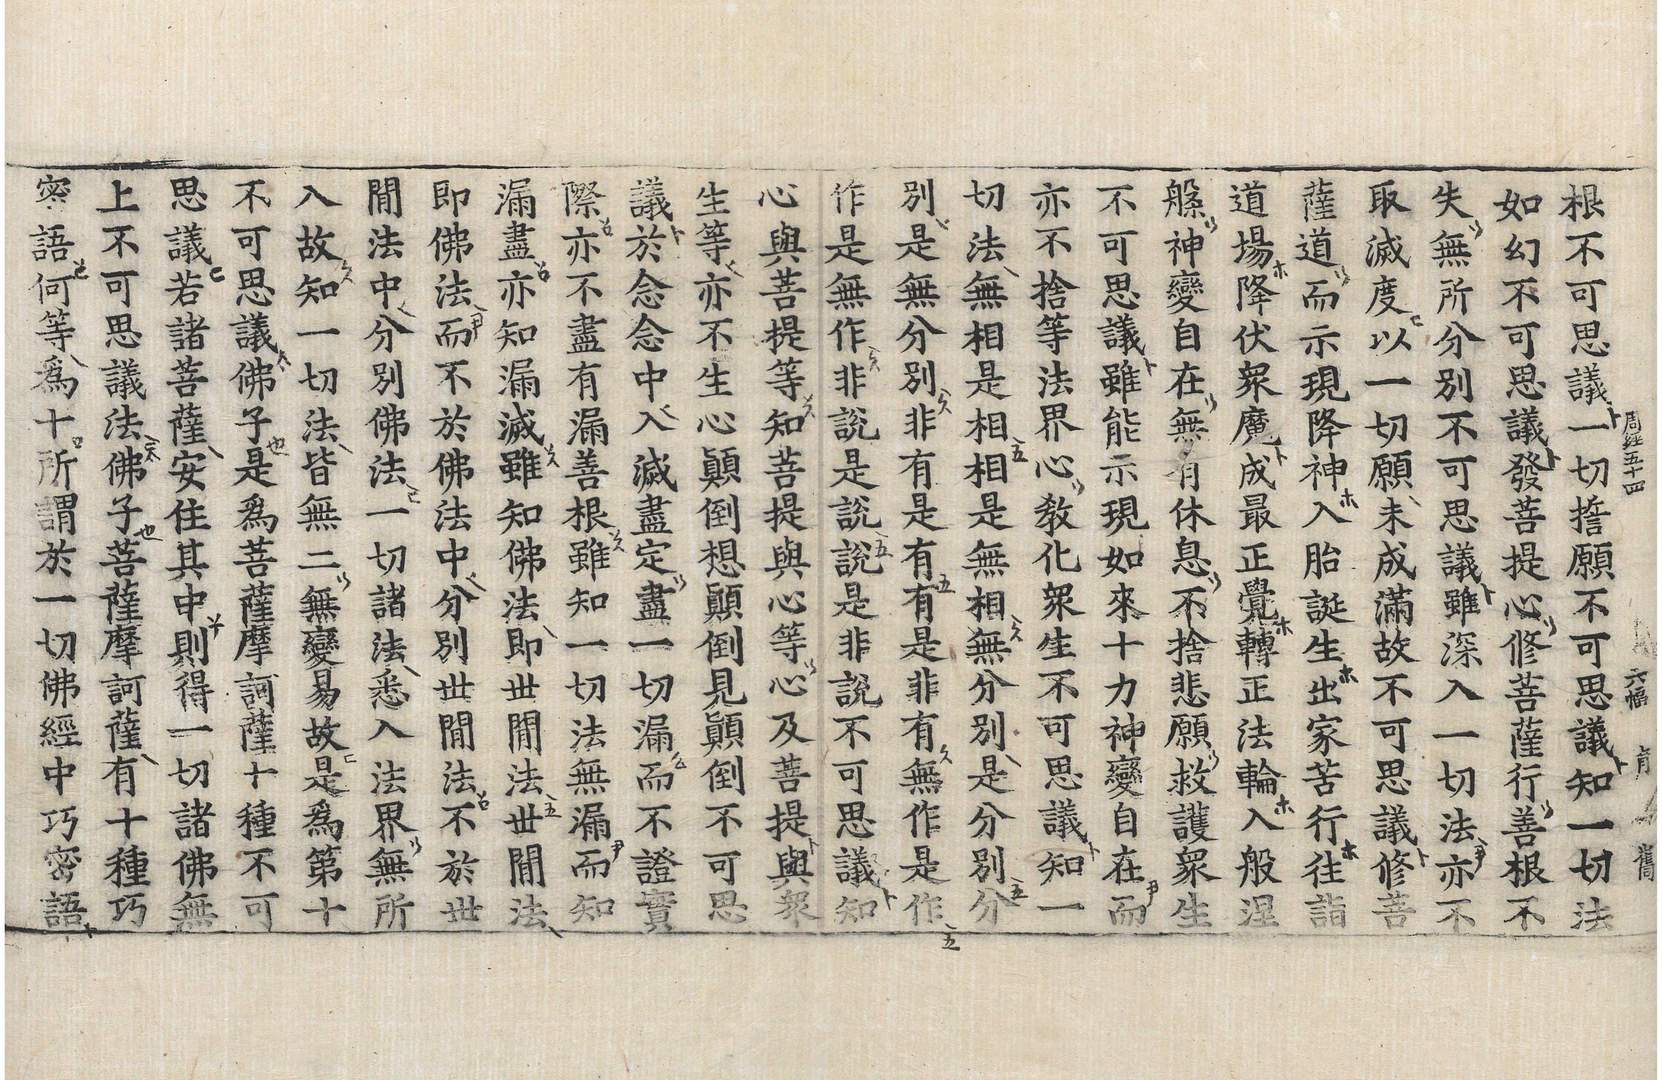 周經五十四
六幅
舊
根不可思議一切誓願不可思議知一切法
如幻不可思議發菩提心修菩薩行善根不
失無所分別不可思議雖深入一切法亦不
取滅度以一切願未成滿故不可思議修菩
薩道而示現降神入胎誕生出家苦行往詣
道場降伏衆魔成最正覺轉正法輪入般涅
槃神變自在無有休息不捨悲願救護衆生
不可思議雖能示現如來十力神變自在而
亦不捨等法界心教化衆生不可思議知一
切法無相是相相是無相無分別是分別分
別是無分別非有是有有是非有無作是作
作是無作非說是說說是非說不可思議知
心與菩提等知菩提與心等心及菩提與衆
生等亦不生心顚倒想顚倒見顚倒不可思
議於念念中入滅盡定盡一切漏而不證實
際亦不盡有漏善根雖知一切法無漏而知
漏盡亦知漏滅雖知佛法即世閒法世閒法
即佛法而不於佛法中分別世閒法不於世
閒法中分別佛法一切諸法悉入法界無所
入故知一切法皆無二無變易故是爲第十
不可思議佛子是爲菩薩摩訶薩十種不可
思議若諸菩薩安住其中則得一切諸佛無
上不可思議法佛子菩薩摩訶薩有十種巧
密語何等爲十所謂於一切佛經中巧密語